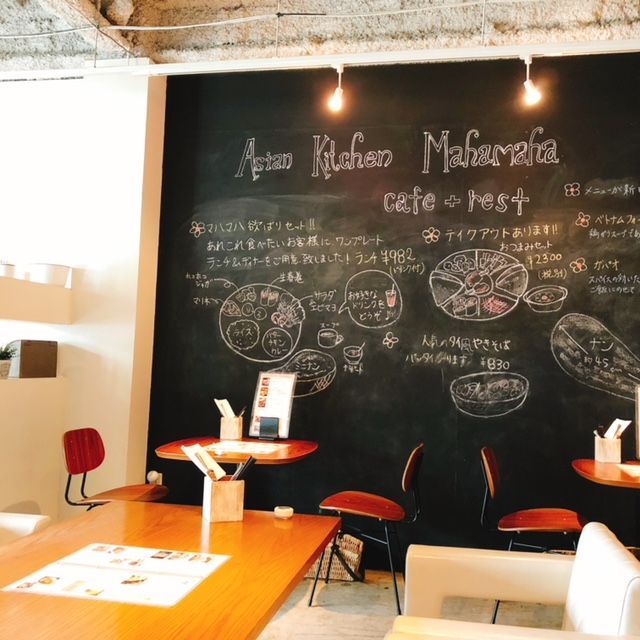 Asian Kitchen Mahamaha
cafe + rest
マハマハ欲ばりセット!!
あれこれ食べたいお客様に、ワンプレート
ランチ&ディナーをご用意致しました!ランチ¥982
(ドリンク付)
生春巻
サラダ
ライス
チキン
カレー
ミニナン
お好きな
ドリンクを
どうぞ
テイクアウトあります!!
おつまみセット
¥2300
(税別)
人気のタイ風やきそば
パッタイあります ¥830
メニューが新
ベトナムフォ
ガパオ
ナン
約45cm